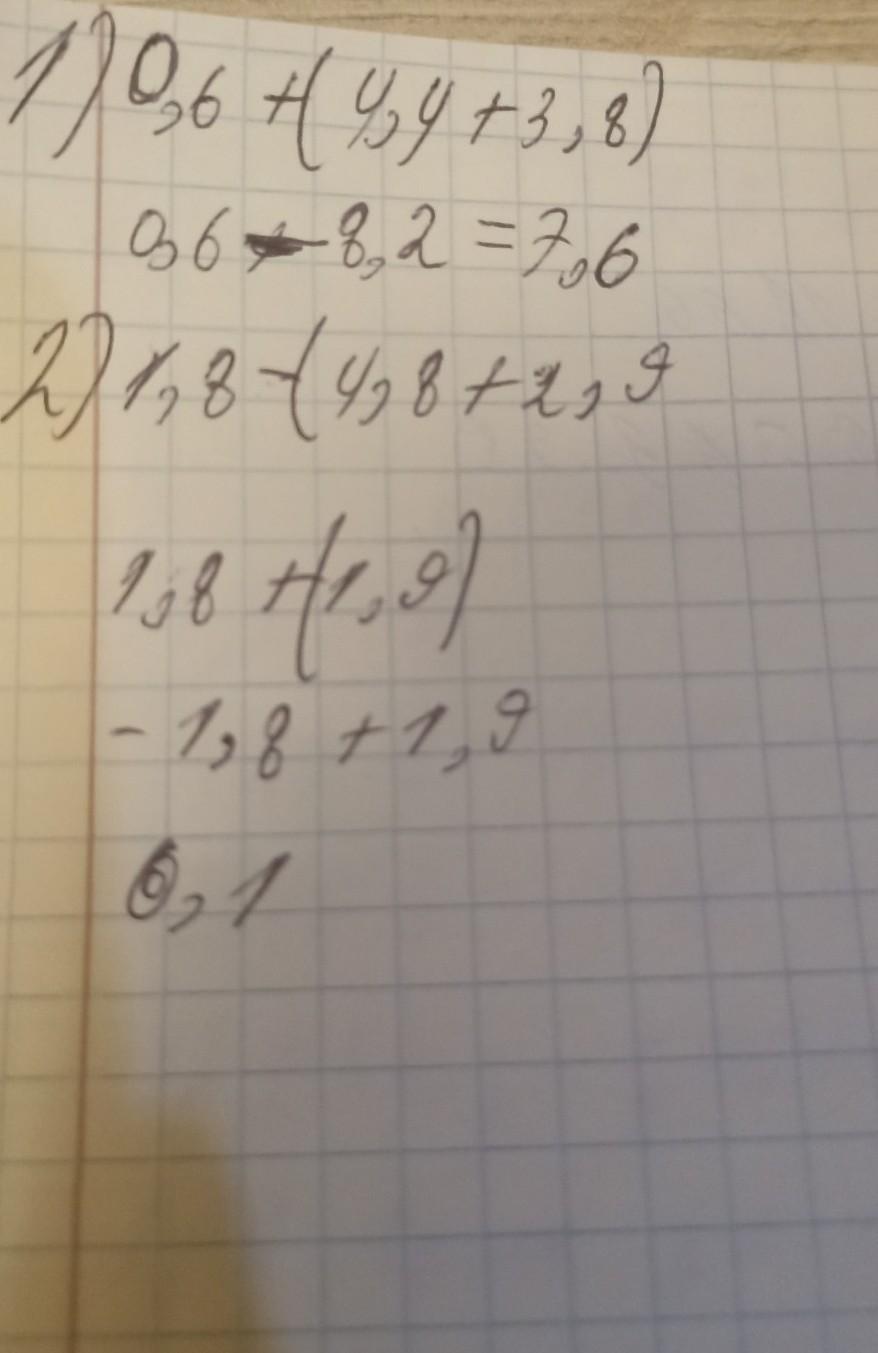 1) 0,6 + (4,4 + 3,8)
0,6 - 8,2 = 7,6
2) 1,8 - (4,8 + 2,9
1,8 + (1,9)
- 1,8 + 1,9
0,1